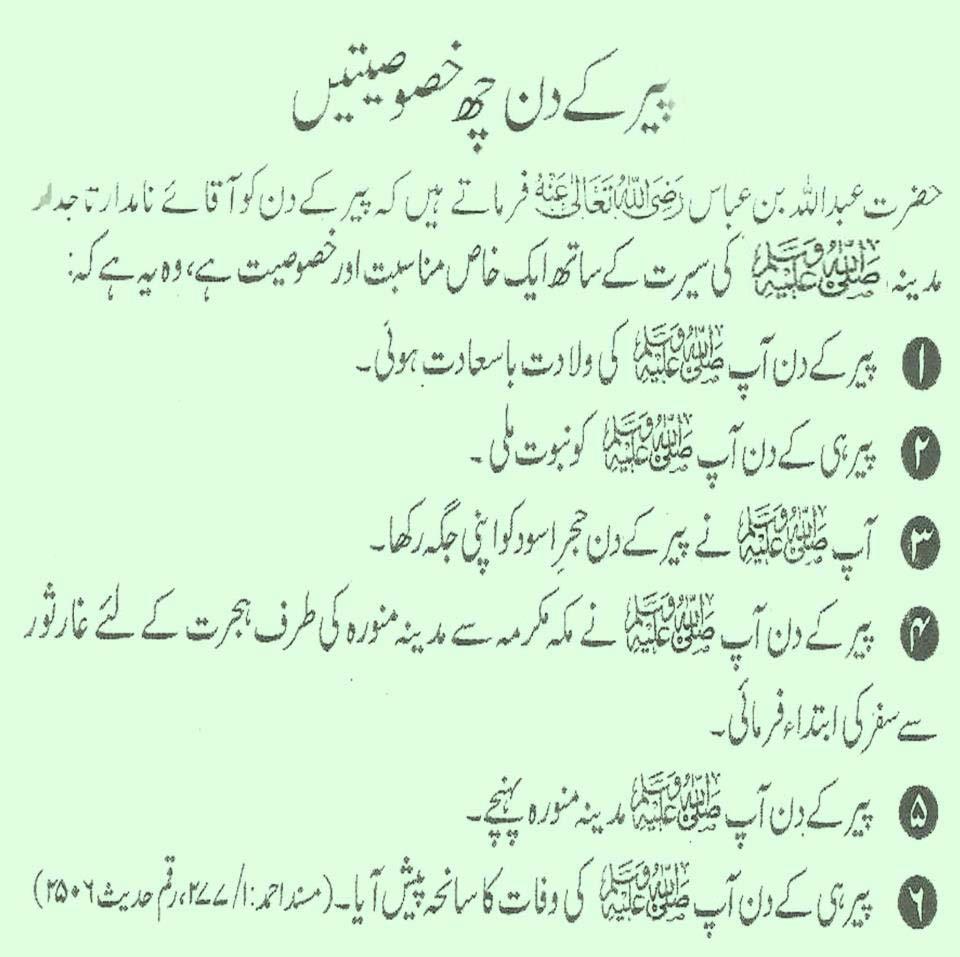 پیر کے دن چھ خصوصیتیں
حضرت عبداللہ بن عباس رَضِيَ اللّٰهُ تَعَالٰى عَنْهُ فرماتے ہیں کہ پیر کے دن کو آقائے نامدار تاجدار
مدینہ صلی اللہ علیہ وسلم کی سیرت کے ساتھ ایک خاص مناسبت اور خصوصیت ہے، وہ یہ ہے کہ:
۱ پیر کے دن آپ صلی اللہ علیہ وسلم کی ولادت باسعادت ہوئی۔
۲ پیر ہی کے دن آپ صلی اللہ علیہ وسلم کو نبوت ملی۔
۳ آپ صلی اللہ علیہ وسلم نے پیر کے دن حجرِ اسود کو اپنی جگہ رکھا۔
۴ پیر کے دن آپ صلی اللہ علیہ وسلم نے مکہ مکرمہ سے مدینہ منورہ کی طرف ہجرت کے لئے غار ثور
سے سفر کی ابتداء فرمائی۔
۵ پیر کے دن آپ صلی اللہ علیہ وسلم مدینہ منورہ پہنچے۔
۶ پیر ہی کے دن آپ صلی اللہ علیہ وسلم کی وفات کا سانحہ پیش آیا۔ (مسند احمد: ۱/۲۷۷، رقم حدیث ۲۵۰۶)